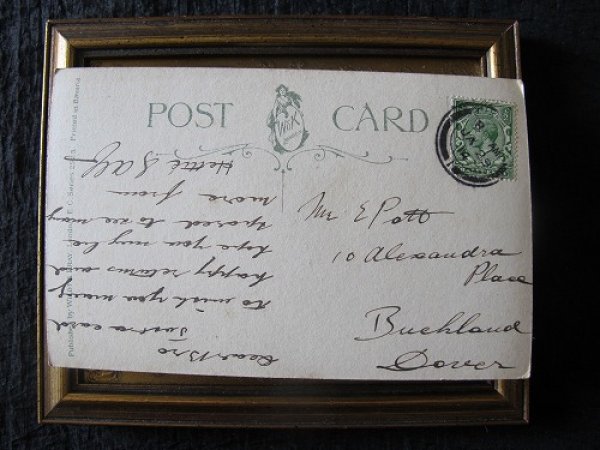 POST CARD
W&K
Dear Bro
Just a card
to wish you many
happy returns and
hope you may be
spared to see many
more from
Hettie & Alf
Mr E Pott
10 Alexandra
Place
Buckland
Dover
Published by London E.C. Series Printed in Bavaria